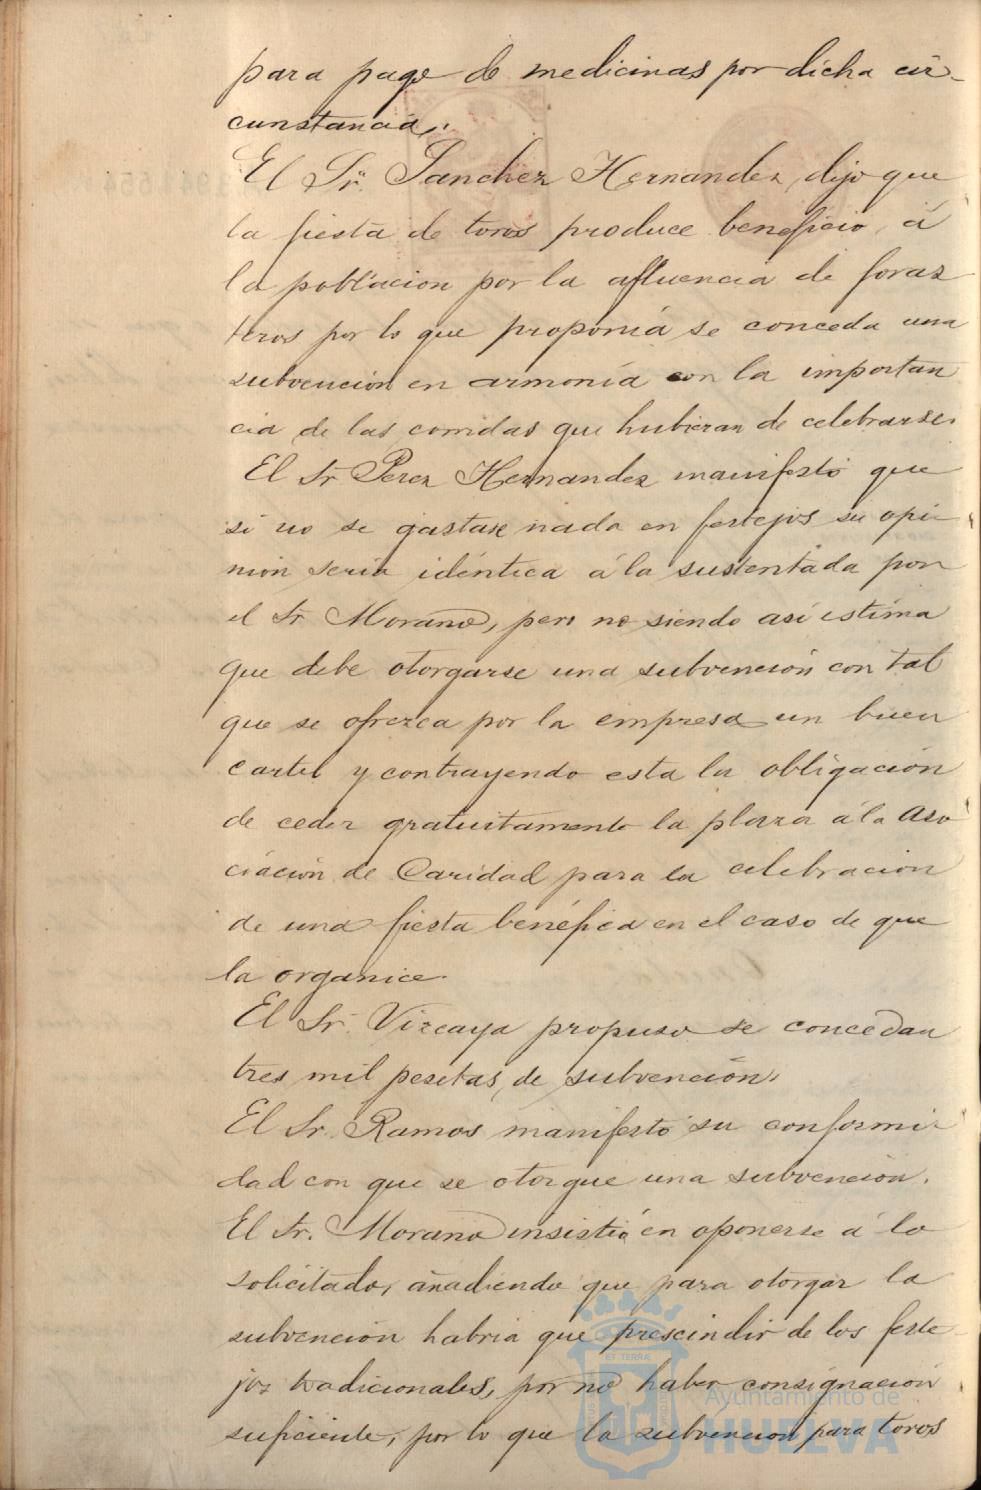 para pago de medicinas por dicha cir-
cunstancia.
El Sr. Sanchez Hernandez dijo que
la fiesta de toros produce beneficio á
la poblacion por la afluencia de foras
teros por lo que proponia se conceda una
subvención en armonía con la importan
cia de las corridas que hubieran de celebrarse.
El Sr Perez Hernandez manifestó que
si no se gastase nada en festejos su opi-
nion seria idéntica á la sustentada por
el Sr Morano, pero no siendo así estima
que debe otorgarse una subvención con tal
que se ofrezca por la empresa un buen
cartel y contrayendo esta la obligación
de ceder gratuitamente la plaza á la Aso
ciación de Caridad para la celebración
de una fiesta benéfica en el caso de que
la organice.
El Sr. Vizcaya propuso se concedan
tres mil pesetas de subvención.
El Sr. Ramos manifestó su conformi-
dad con que se otorgue una subvención.
El Sr. Morano insistió en oponerse á lo
solicitado, añadiendo que para otorgar la
subvención habria que prescindir de los feste-
jos tradicionales, por no haber consignación
suficiente, por lo que la subvencion para toros
ET TERRÆ
Ayuntamiento de
HUELVA